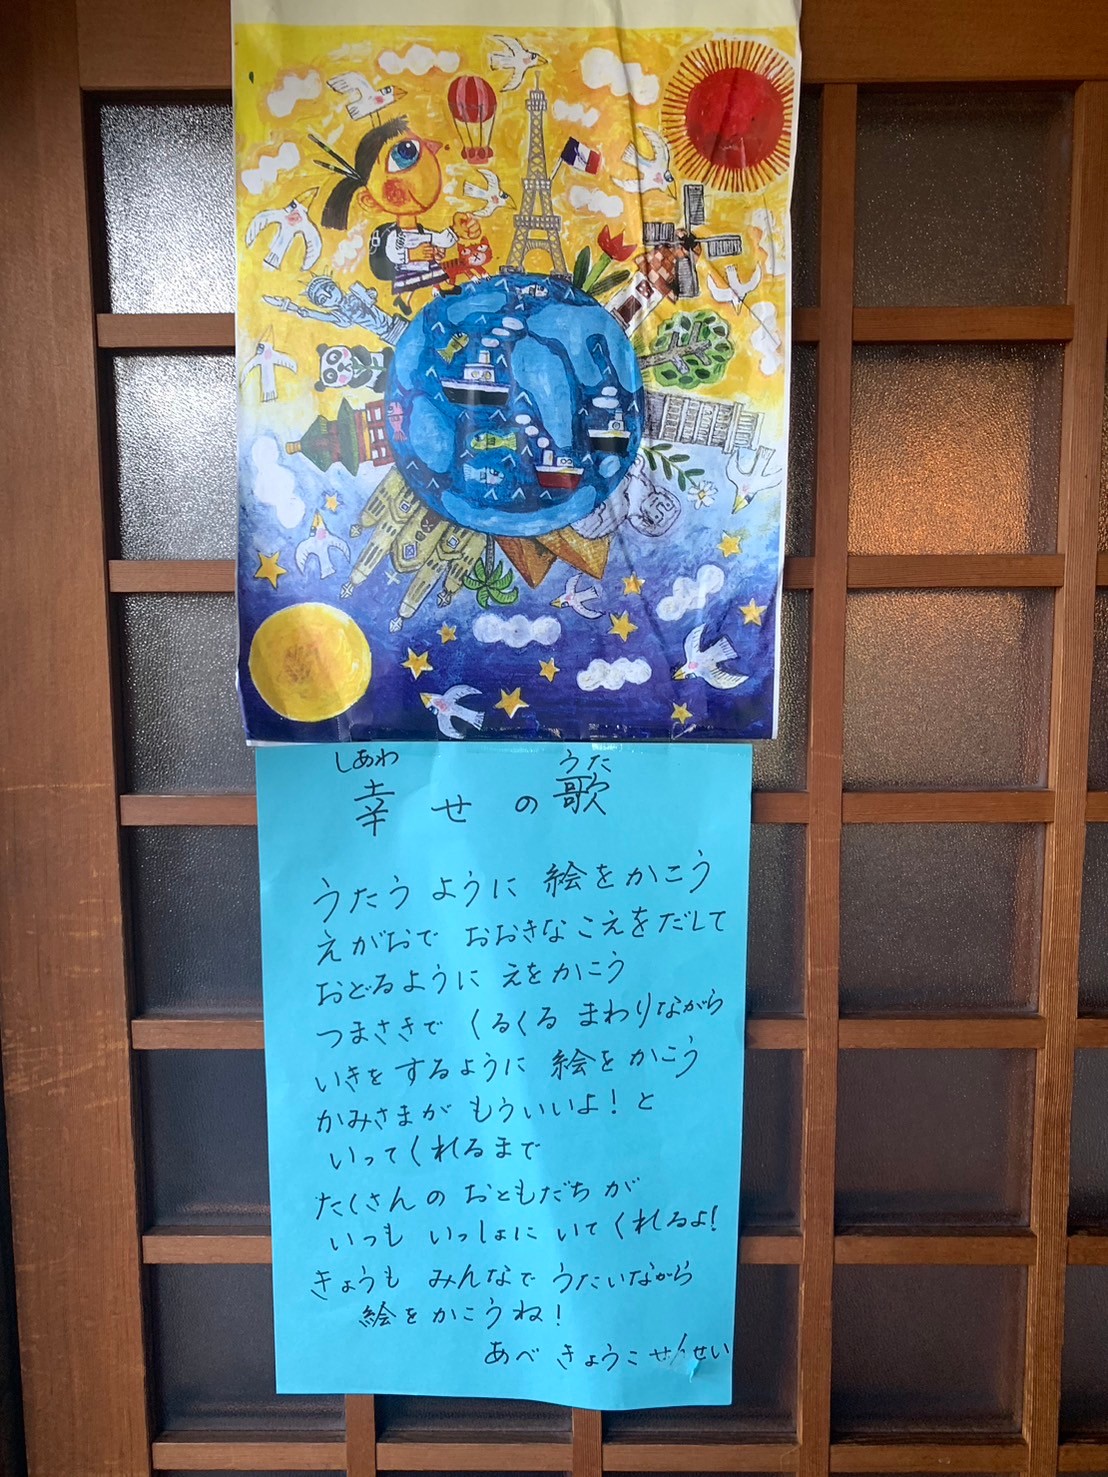 しあわ うた
幸せの歌
うたうように 絵をかこう
えがおで おおきなこえをだして
おどるように えをかこう
つまさきで くるくる まわりながら
いきをするように 絵をかこう
かみさまが もういいよ!と
いってくれるまで
たくさんの おともだちが
いつも いっしょに いてくれるよ!
きょうも みんなで うたいながら
絵をかこうね!
あべ きょうこ せんせい